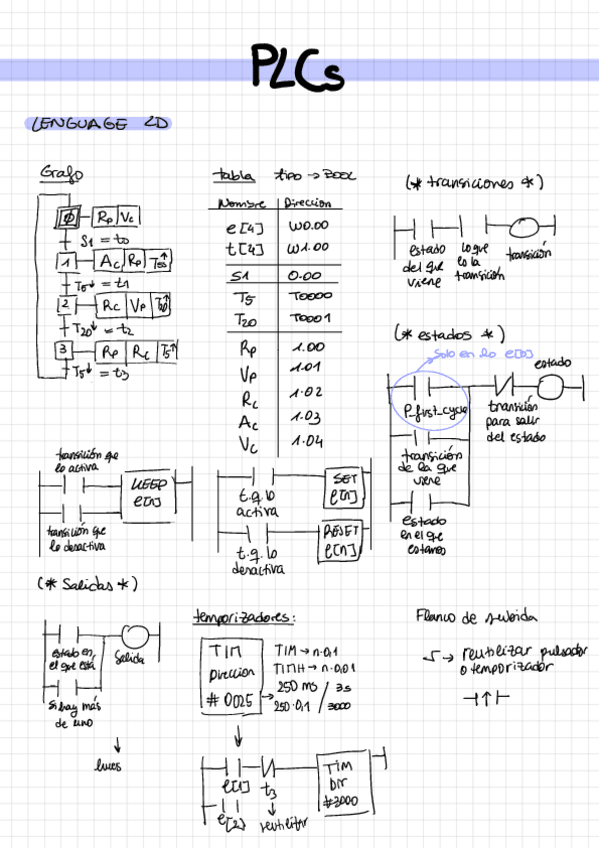 PLCs
LENGUAGE LD
Grafo
0 Rp Vc
S1 = t0
1 Ac Rp T5↑
T5↓ = t1
2 Rc Vp T20↑
T20↓ = t2
3 Rp Rc T5↑
T5↓ = t3
tabla tipo → BOOL
Nombre Dirección
e[4] W0.00
t[4] W1.00
S1 0.00
T5 T0000
T20 T0001
Rp 1.00
Vp 1.01
Rc 1.02
Ac 1.03
Vc 1.04
(* transiciones *)
estado del que viene
lo que es la transición
transición
(* estados *)
solo en lo e[0]
estado
P_first_cycle
transición para salir del estado
transición de la que viene
estado en el que estamos
transición que lo activa
KEEP
e[n]
transición que lo desactiva
SET
e[n]
t.q. lo activa
RESET
e[n]
t.q. lo desactiva
(* Salidas *)
estado en el que está
Salida
Si hay más de uno
luces
temporizadores:
TIM
Dirección
# 0025
TIM → n·0,1
TIMH → n·0,01
250 ms / 3s
250·0,1 / 3000
e[1] t3
e[2] reutilizar
TIM
Dir
#3000
Flanco de subida
→ reutilizar pulsador
o temporizador